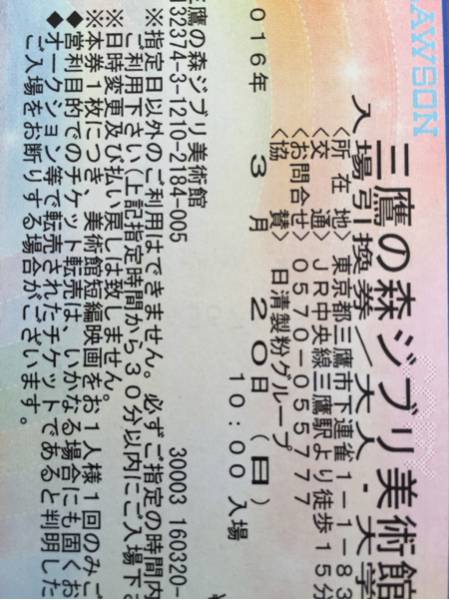 AWSON
三鷹の森ジブリ美術館
入場引換券／大人・大学
〈所在地〉東京都三鷹市下連雀1-1-83
〈交通〉JR中央線三鷹駅より徒歩15分
〈お問合せ〉0570-055777
〈協賛〉日清製粉グループ
016年 3月 20日(日)
10:00入場
鷹の森ジブリ美術館
132374-3-1210-2184-005 30003 160320-
※指定日以外のご利用はできません。必ずご指定の時間内
ご利用下さい(上記指定時間から30分以内にご入場下さ
※日時変更及び払い戻しは致しません。
※本券1枚につき、美術館短編映画をお1人様1回のみご
◆営利目的でのチケット転売は、いかなる場合にも固くお
◆オークション等で転売されたチケットであると判明した
ご入場をお断りする場合がございます。